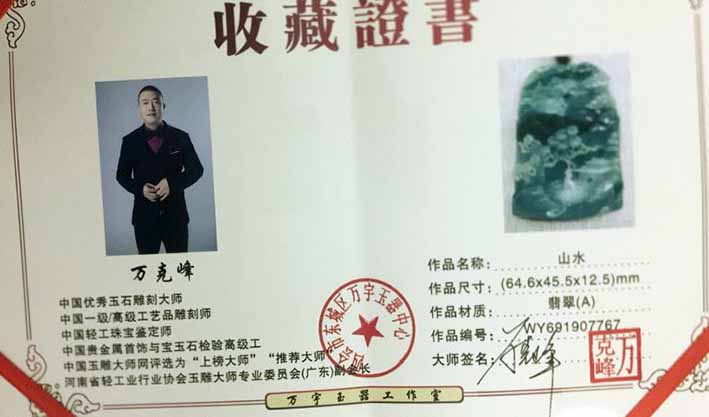 收藏證書
万克峰
中国优秀玉石雕刻大师
中国一级/高级工艺品雕刻师
中国轻工珠宝鉴定师
中国贵金属首饰与宝玉石检验高级工
中国玉雕大师网评选为“上榜大师”“推荐大师”
河南省轻工业行业协会玉雕大师专业委员会(广东)副会长
四会市东城区万宇玉器中心
作品名称: 山水
作品尺寸: (64.6x45.5x12.5)mm
作品材质: 翡翠(A)
作品编号: WY691907767
大师签名: 万克峰
万克峰
万宇玉器工作室